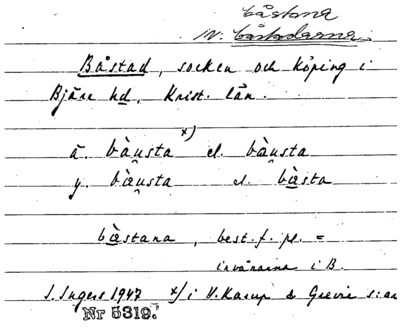 båstana
inv. båstadarna
Båstad, socken och köping i
Bjäre hd, Krist. län.
ä. bàu̯sta x) el. bàu̯sta
y. bàu̯sta el. bæ̀sta
bæ̀stana, best. f. pl. =
invånarna i B.
I. Ingers 1947 x) i V. Karup & Grevie s:ar
Nr 5319.